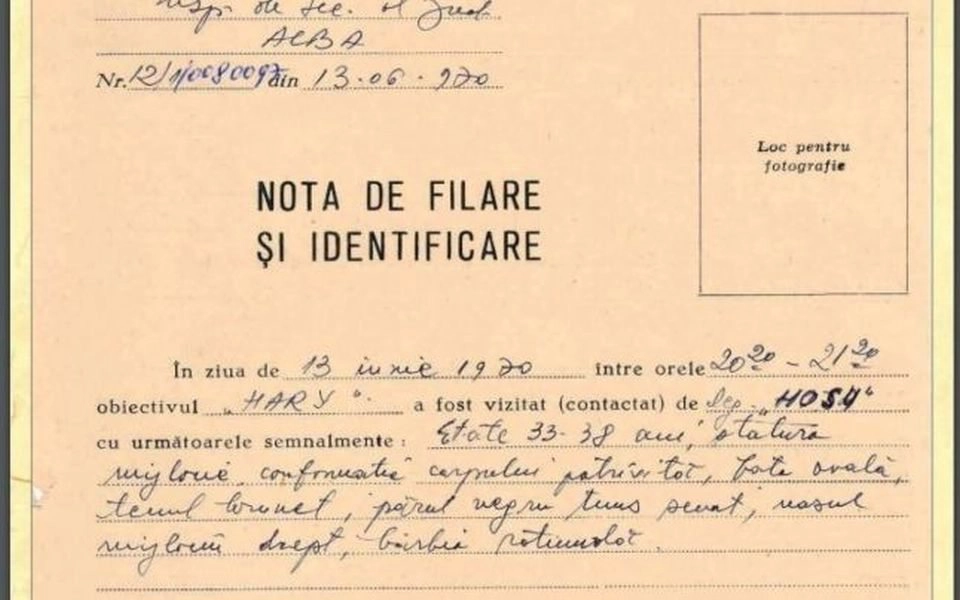 Insp. de Sec. al Jud.
ALBA
Nr. 12/1/0080097 din 13.06.970
Loc pentru
fotografie
NOTA DE FILARE
ŞI IDENTIFICARE
În ziua de 13 iunie 1970 între orele 20²⁰ - 21²⁰
obiectivul „HARY“ a fost vizitat (contactat) de leg. „HOSU“
cu următoarele semnalmente : Etate 33-38 ani, statura
mijlocie, conformația corpului potrivită, fața ovală,
tenul brunet, părul negru tuns scurt, nasul
mijlociu drept, bărbia rotundă.